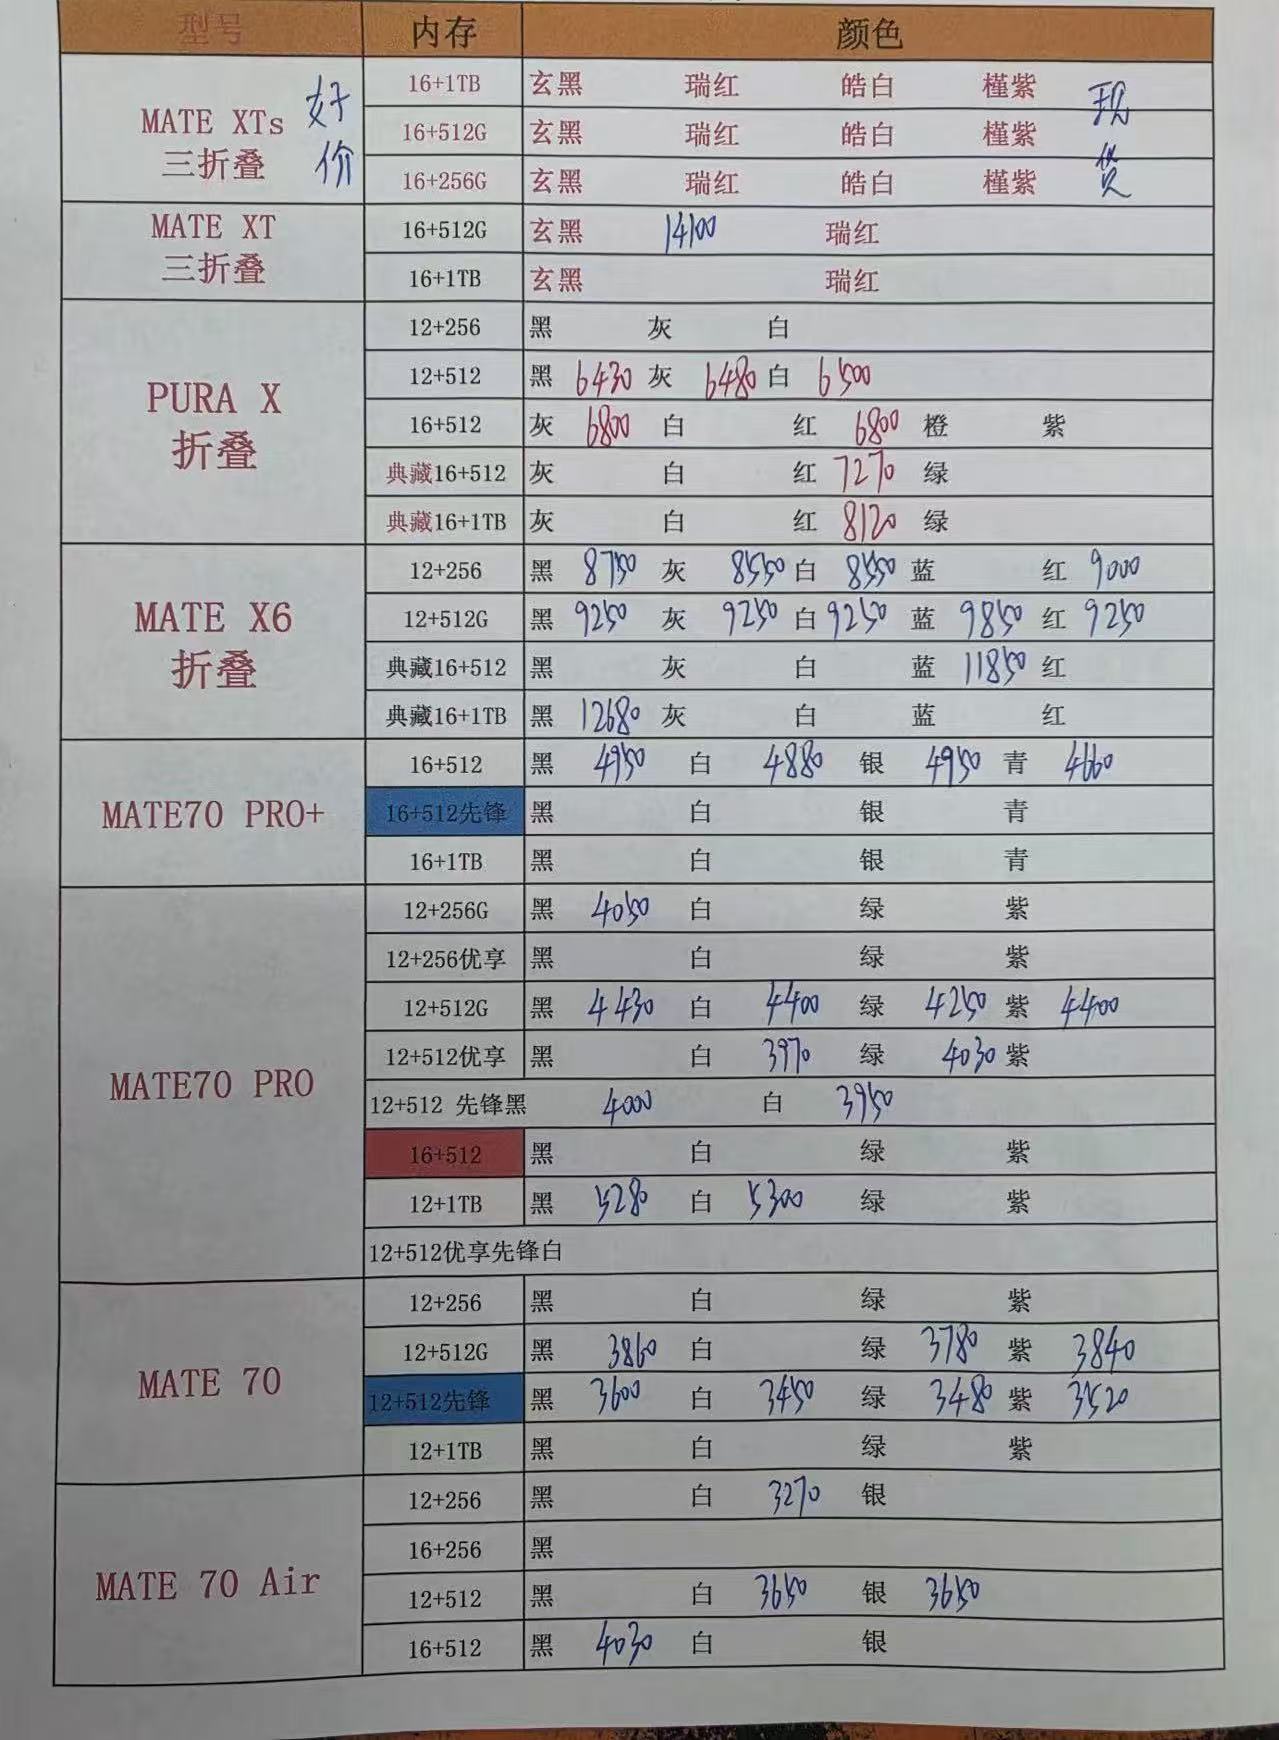 型号 内存 颜色
MATE XTs 三折叠 好价 现货
16+1TB 玄黑 瑞红 皓白 槿紫
16+512G 玄黑 瑞红 皓白 槿紫
16+256G 玄黑 瑞红 皓白 槿紫
MATE XT 三折叠
16+512G 玄黑 14100 瑞红
16+1TB 玄黑 瑞红
PURA X 折叠
12+256 黑 灰 白
12+512 黑 6430 灰 6480 白 6500
16+512 灰 6800 白 红 6800 橙 紫
典藏16+512 灰 白 红 7270 绿
典藏16+1TB 灰 白 红 8120 绿
MATE X6 折叠
12+256 黑 8750 灰 8550 白 8550 蓝 红 9000
12+512G 黑 9250 灰 9250 白 9250 蓝 9850 红 9250
典藏16+512 黑 灰 白 蓝 11850 红
典藏16+1TB 黑 12680 灰 白 蓝 红
MATE70 PRO+
16+512 黑 4950 白 4880 银 4950 青 4660
16+512先锋 黑 白 银 青
16+1TB 黑 白 银 青
MATE70 PRO
12+256G 黑 4050 白 绿 紫
12+256优享 黑 白 绿 紫
12+512G 黑 4430 白 4400 绿 4250 紫 4400
12+512优享 黑 白 3970 绿 4030 紫
12+512 先锋黑 4000 白 3950
16+512 黑 白 绿 紫
12+1TB 黑 5280 白 5300 绿 紫
12+512优享先锋白
MATE 70
12+256 黑 白 绿 紫
12+512G 黑 3860 白 绿 3780 紫 3840
12+512先锋 黑 3600 白 3450 绿 3480 紫 3520
12+1TB 黑 白 绿 紫
MATE 70 Air
12+256 黑 白 3270 银
16+256 黑
12+512 黑 白 3650 银 3650
16+512 黑 4030 白 银